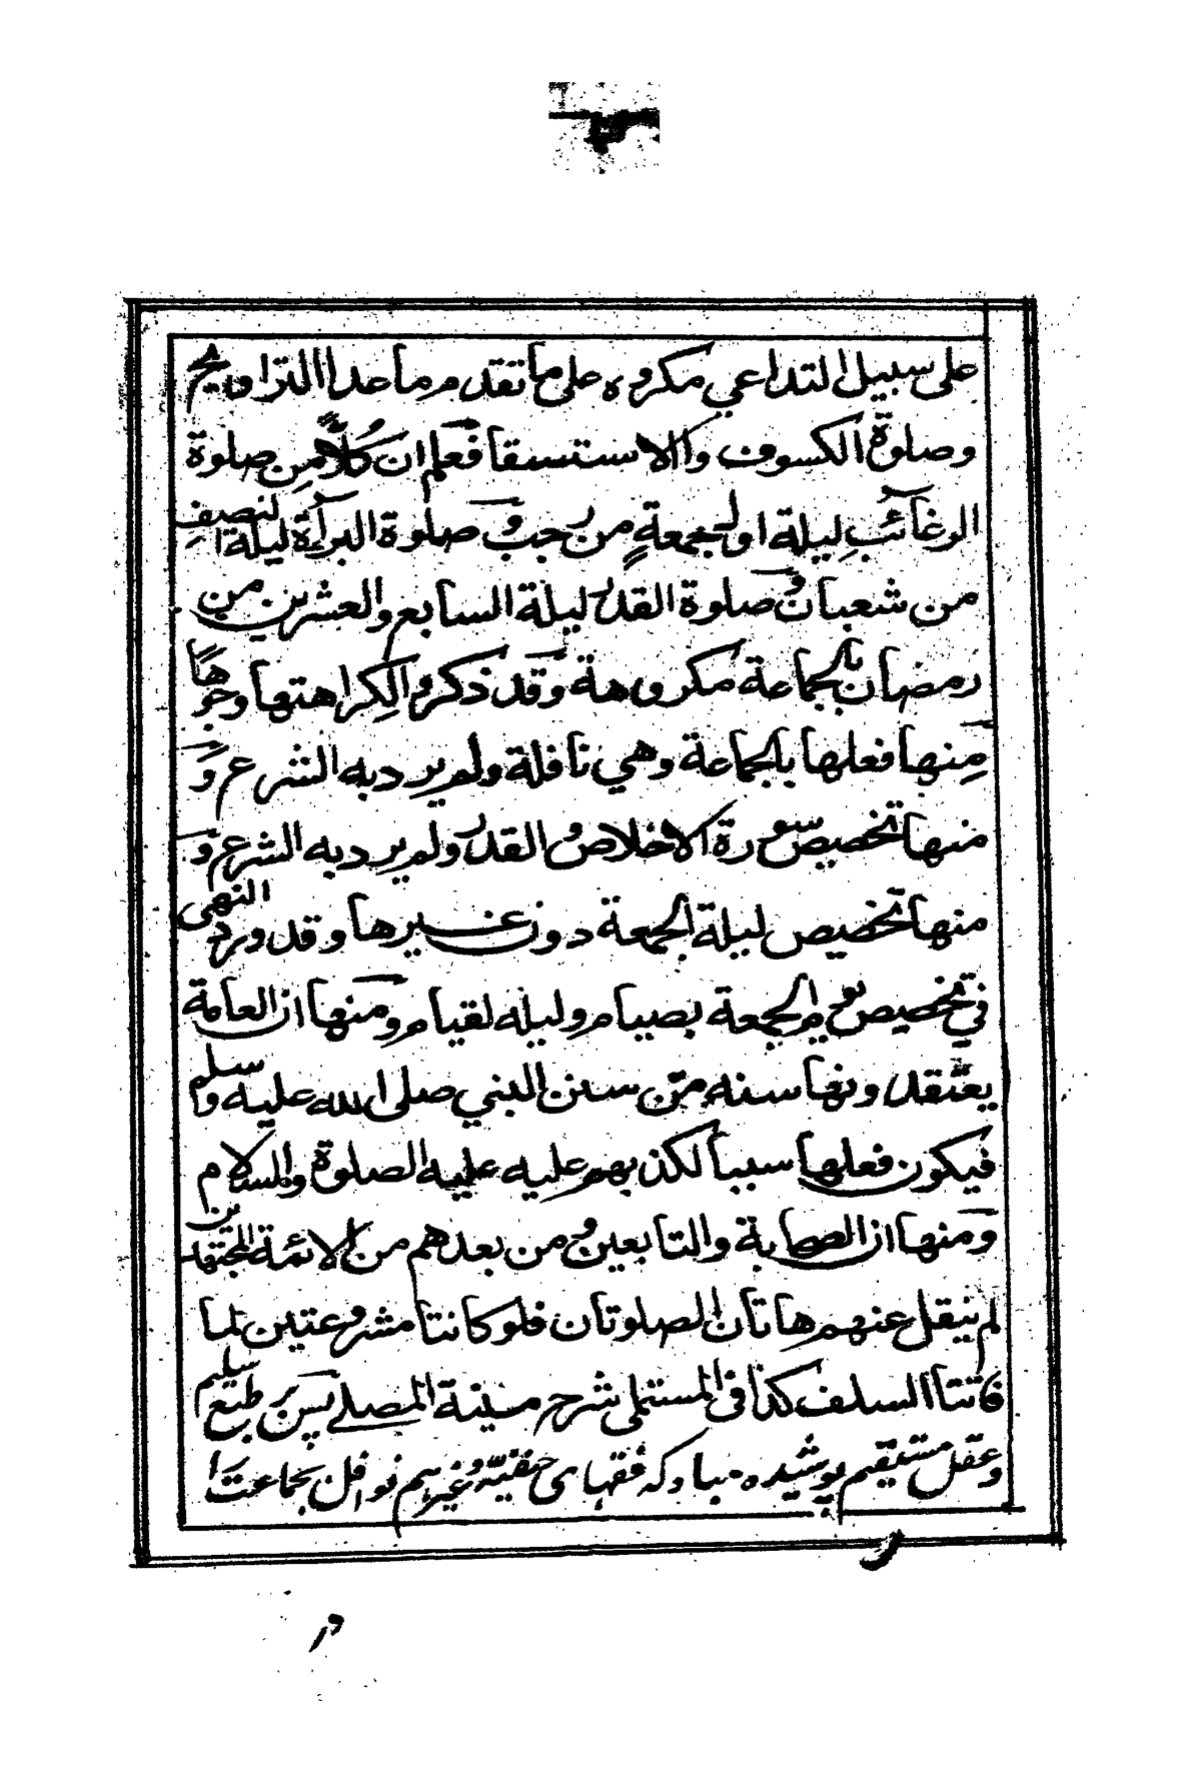 على سبيل التداعي مكروه على ما تقدم ما عدا التراويح
وصلوة الكسوف والاستسقا فعلم ان كلا من صلوة
الرغائب ليلة اول جمعة من رجب و صلوة البرأة ليلة النصف
من شعبان و صلوة القدر ليلة السابع والعشرين من
رمضان بالجماعة مكروهة وقد ذكروا لكراهتها وجوها
منها فعلها بالجماعة وهي نافلة ولم يرد به الشرع و
منها تخصيص سورة الاخلاص و القدر ولم يرد به الشرع و
منها تخصيص ليلة الجمعة دون غيرها وقد ورد النهى
في تخصيص يوم الجمعة بصيام وليله لقيام ومنها ان العامة
يعتقدونها سنه من سنن النبي صلى الله عليه وسلم
فيكون فعلها سببا لكذبهم عليه عليه الصلوة والسلام
ومنها ان الصحابة والتابعين و من بعدهم من الائمة المجتهدين
لم ينقل عنهم هاتان الصلوتان فلو كانتا مشروعتين لما
فاتتا السلف كذا فى المستملى شرح منية المصلے پس بر طبع سليم
وعقل مستقيم پوشيده مباد كه فقهاى حنفيه وغيرهم نوافل بجماعت را
در